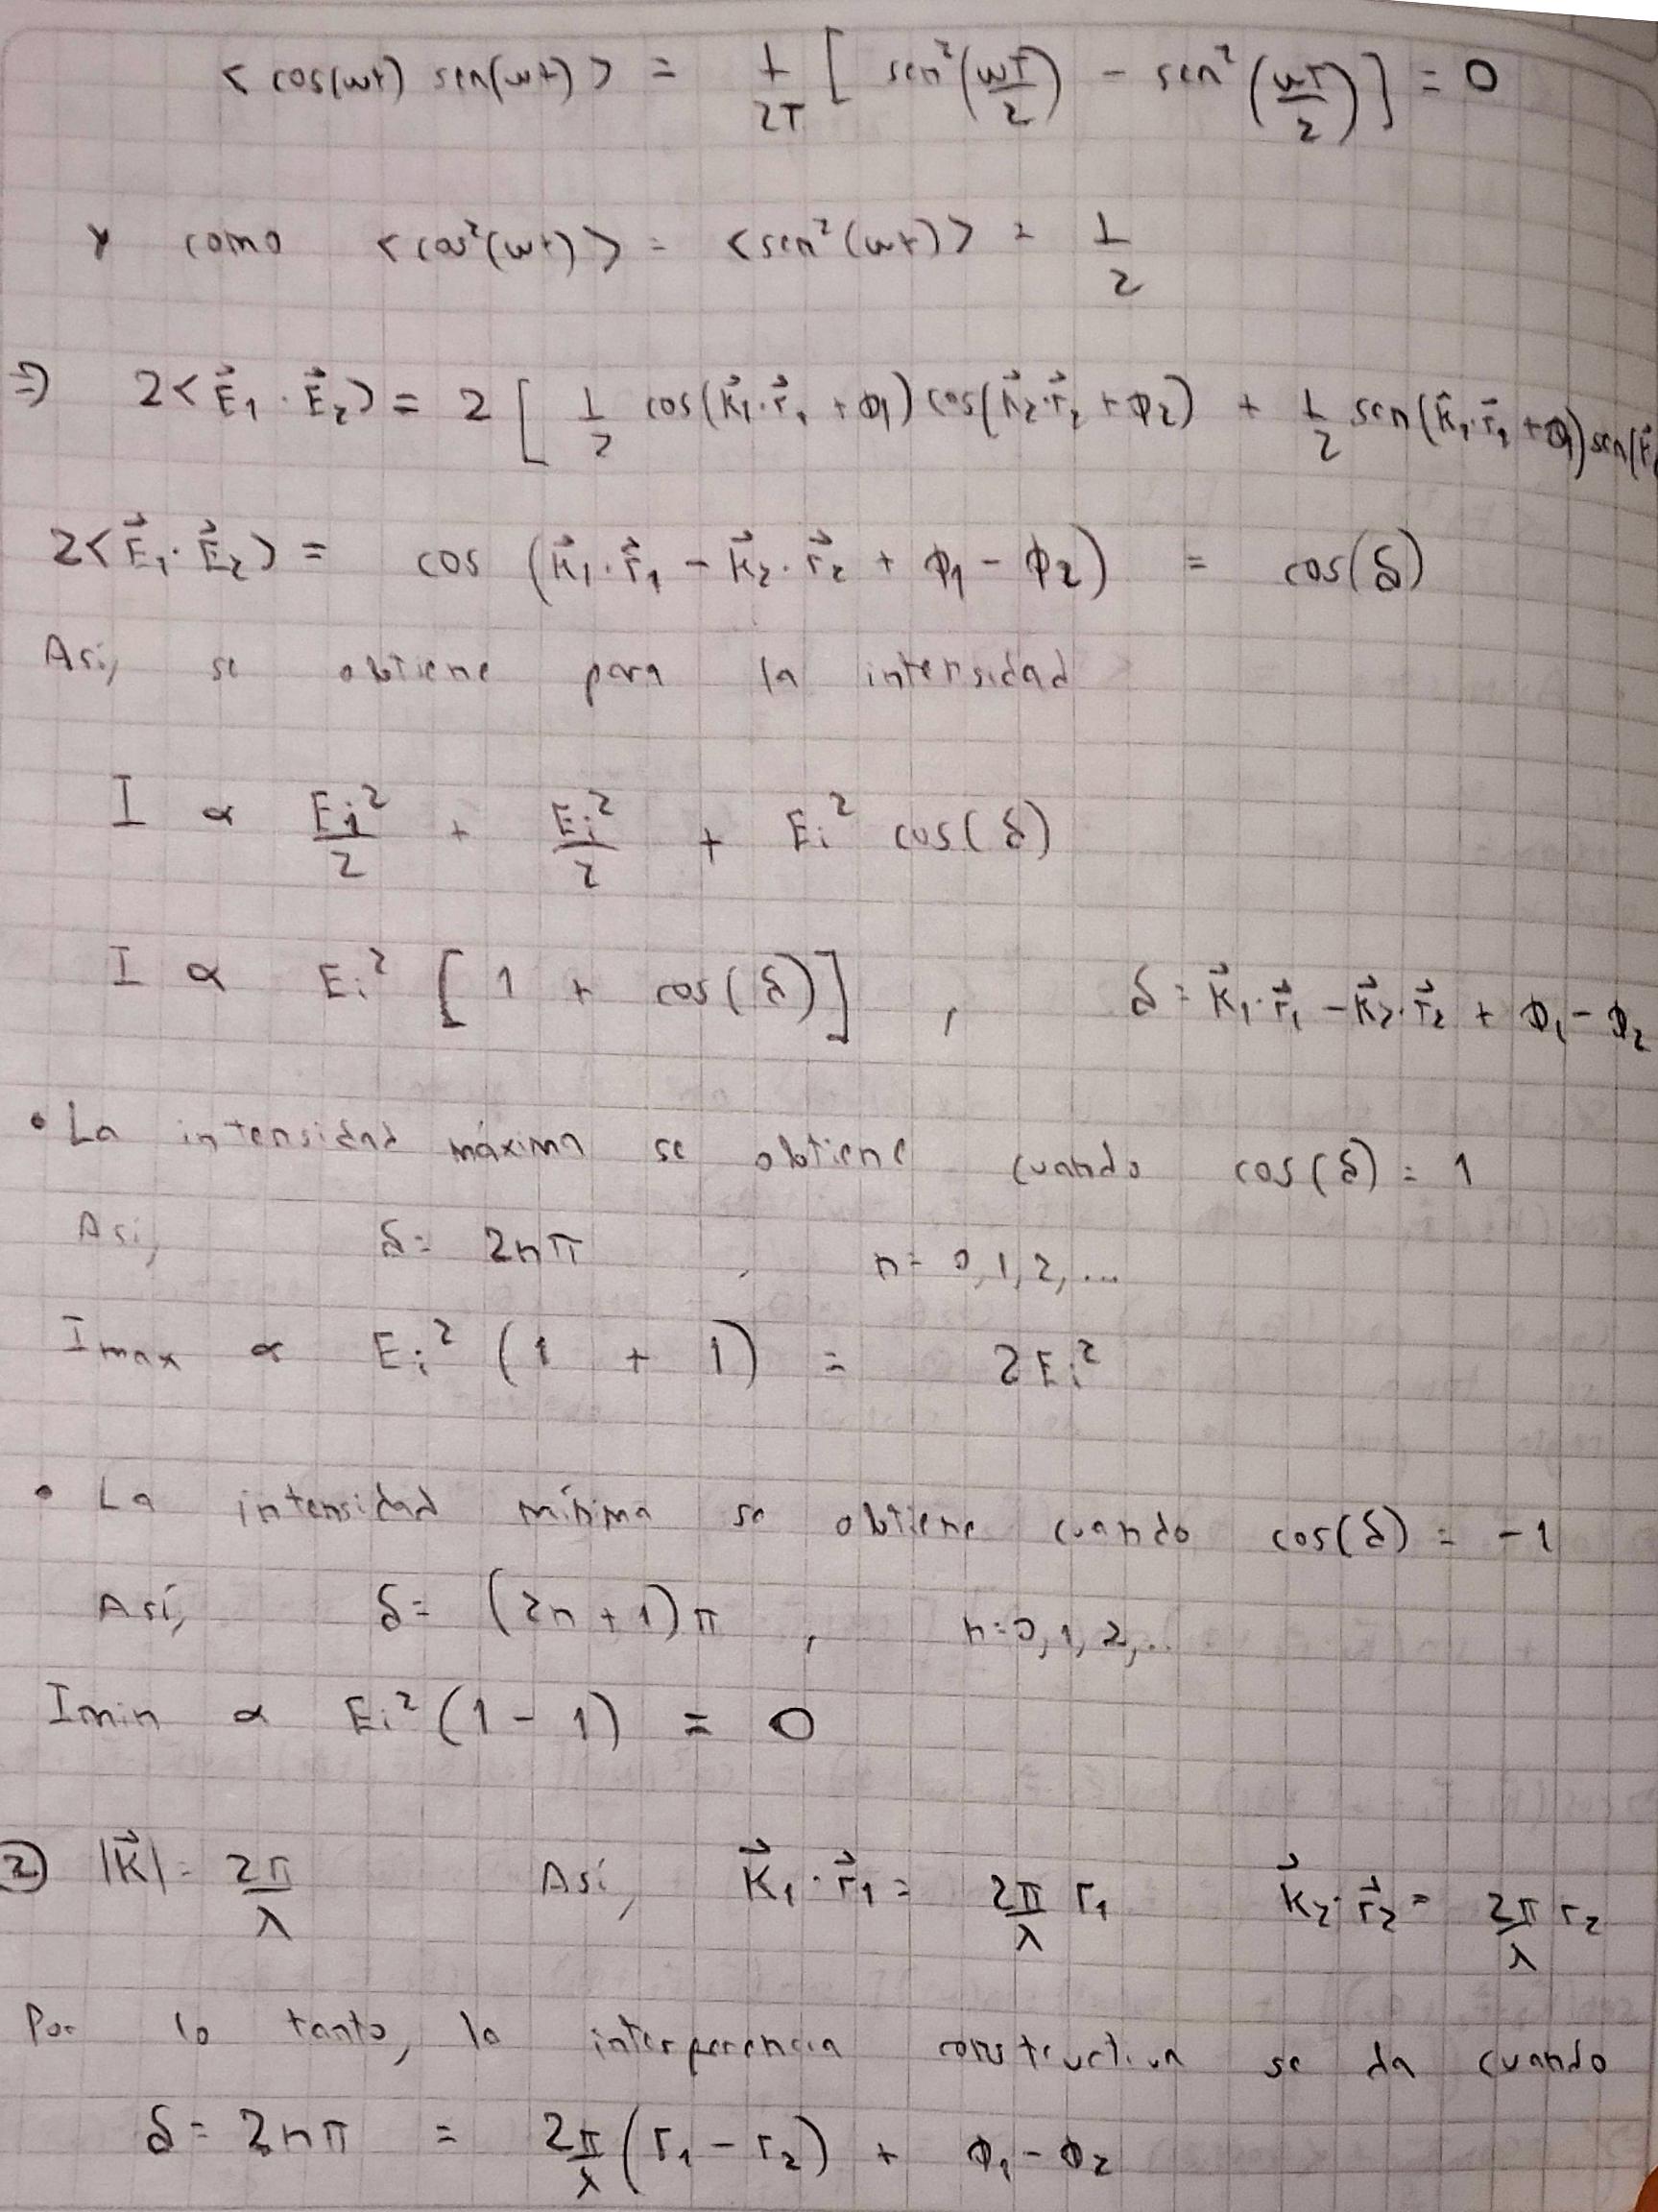 < cos(wt) sen(wt) > = 1/2T [ sen²(wT/2) - sen²(wT/2) ] = 0
y como < cos²(wt) > = < sen²(wt) > = 1/2
⇒ 2< E⃗₁ · E⃗₂ > = 2 [ 1/2 cos(k⃗₁·r⃗₁ + ϕ₁) cos(k⃗₂·r⃗₂ + ϕ₂) + 1/2 sen(k⃗₁·r⃗₁ + ϕ₁) sen(k⃗
2< E⃗₁ · E⃗₂ > = cos (k⃗₁·r⃗₁ - k⃗₂·r⃗₂ + ϕ₁ - ϕ₂) = cos(δ)
Así, se obtiene para la intensidad
I ∝ Eᵢ²/2 + Eᵢ²/2 + Eᵢ² cos(δ)
I ∝ Eᵢ² [ 1 + cos(δ) ] , δ = k⃗₁·r⃗₁ - k⃗₂·r⃗₂ + ϕ₁ - ϕ₂
• La intensidad máxima se obtiene cuando cos(δ) = 1
Así, δ = 2nπ , n = 0, 1, 2, ...
Imax ∝ Eᵢ² (1 + 1) = 2Eᵢ²
• La intensidad mínima se obtiene cuando cos(δ) = -1
Así, δ = (2n + 1)π , n = 0, 1, 2, ..
Imin ∝ Eᵢ² (1 - 1) = 0
② |k⃗| = 2π/λ Así, k⃗₁·r⃗₁ = 2π/λ r₁ k⃗₂·r⃗₂ = 2π/λ r₂
Por lo tanto, la interferencia constructiva se da cuando
δ = 2nπ = 2π/λ (r₁ - r₂) + ϕ₁ - ϕ₂